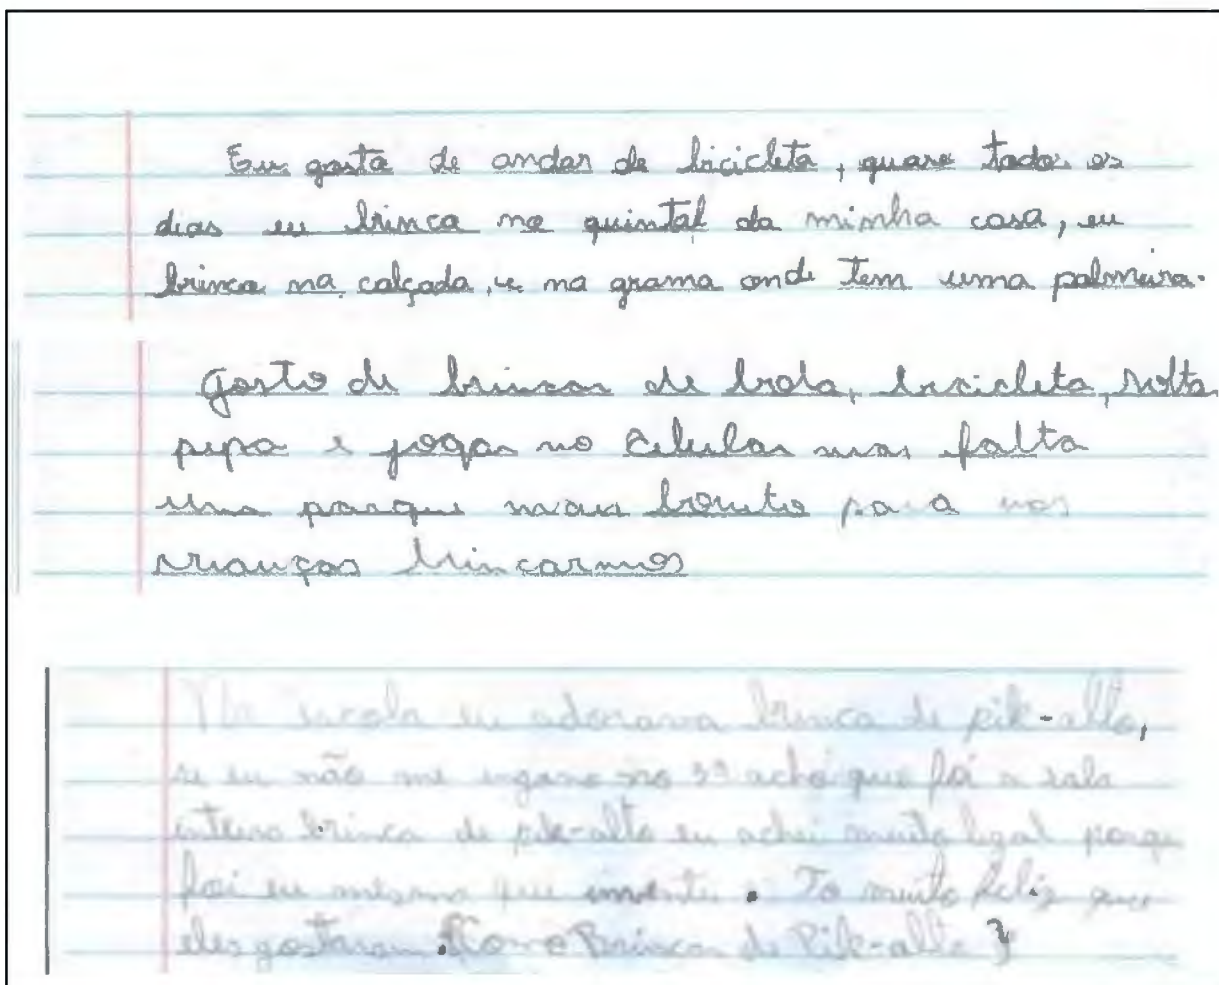 Eu gosta de andar de bicicleta, quase todos os
dias eu brinca no quintal da minha casa, eu
brinca na calçada, e na grama onde tem uma palmeira.
Gosto de brincar de bola, bicicleta, solta
pipa e jogar no celular mas falta
um parque mais bonito para nos
crianças brincarmos
Na escola eu adorava brinca de pik-alto,
se eu não me engano no 3º acho que foi a sala
inteira brinca de pik-alto eu achei muito legal porque
foi eu mesmo que invente. To muito feliz que
eles gostaram. Brinca de Pik-alto